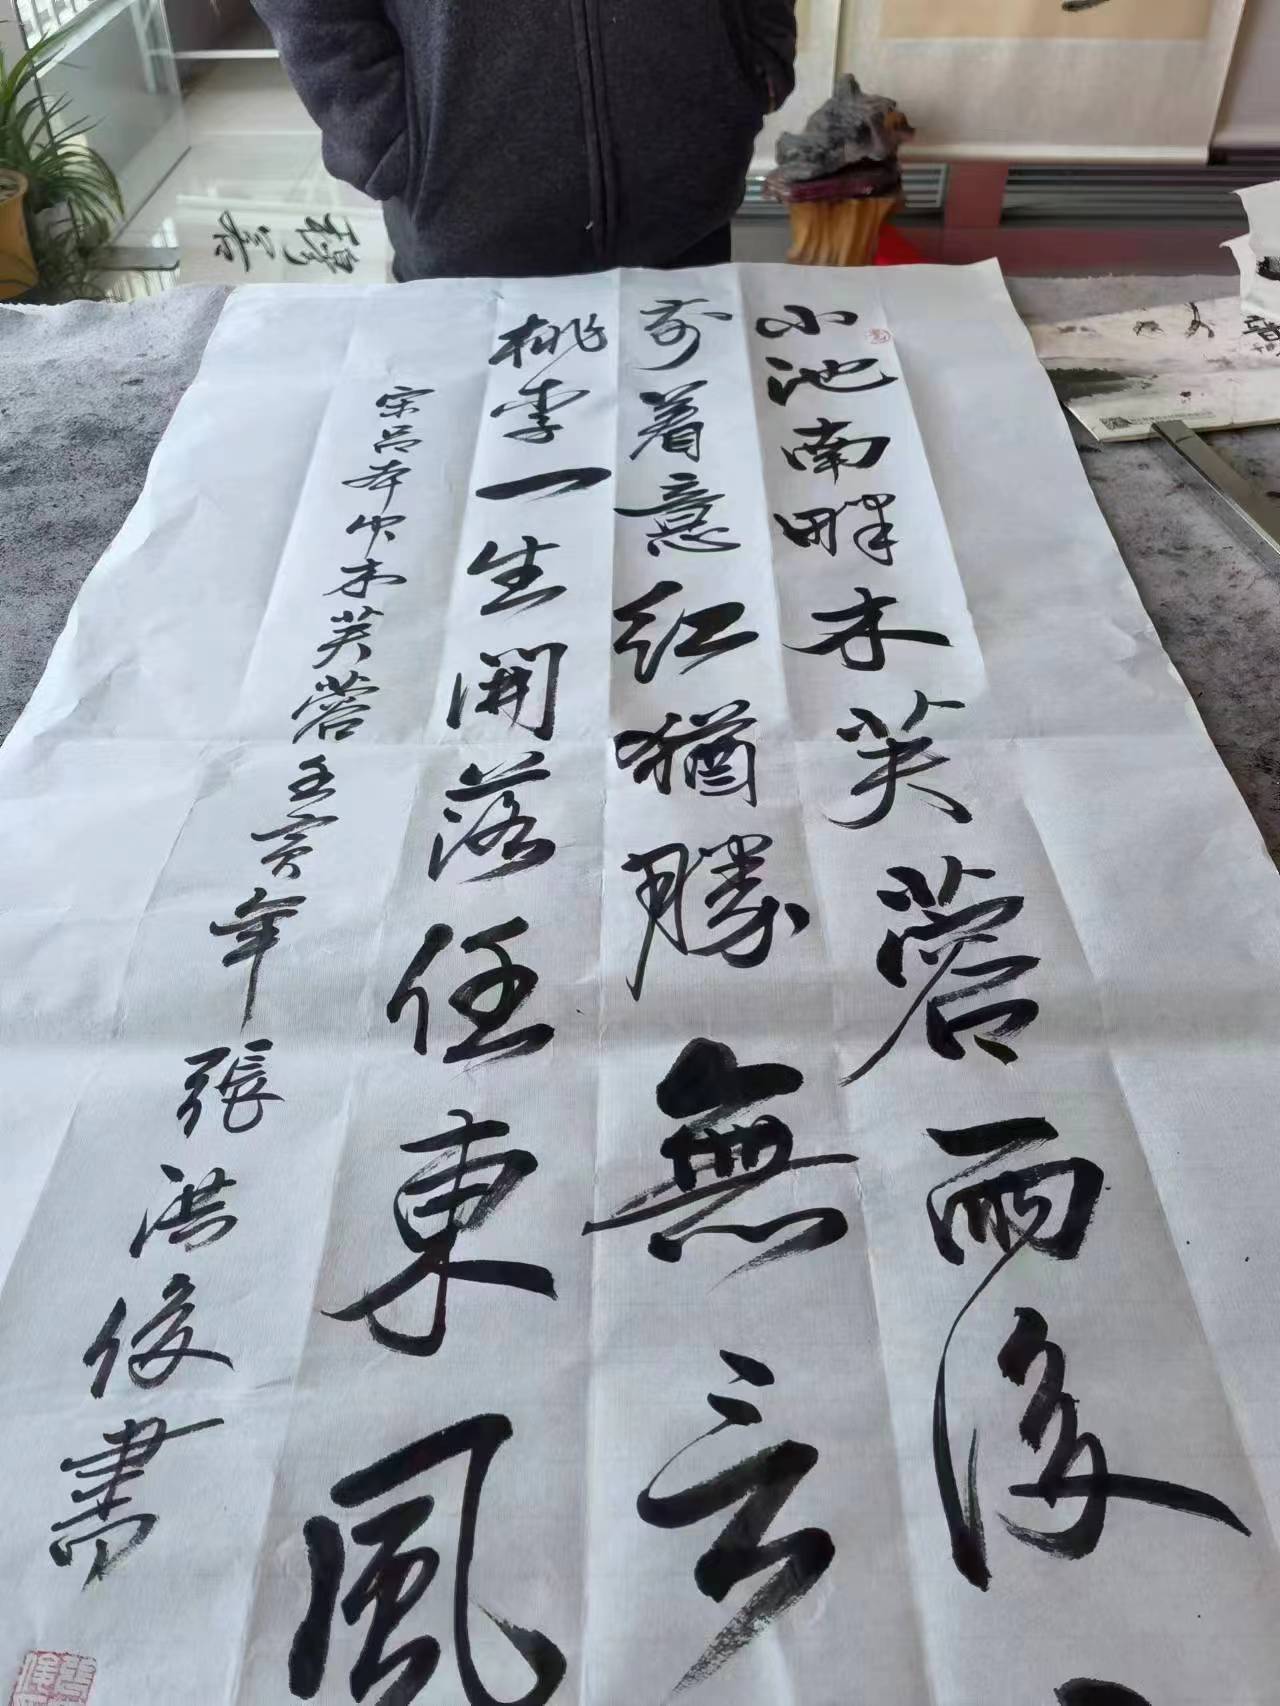 小池南畔木芙蓉雨後
前着意紅猶勝無言
桃李一生開落任東風
宋吕本中木芙蓉壬寅年張洪俊書